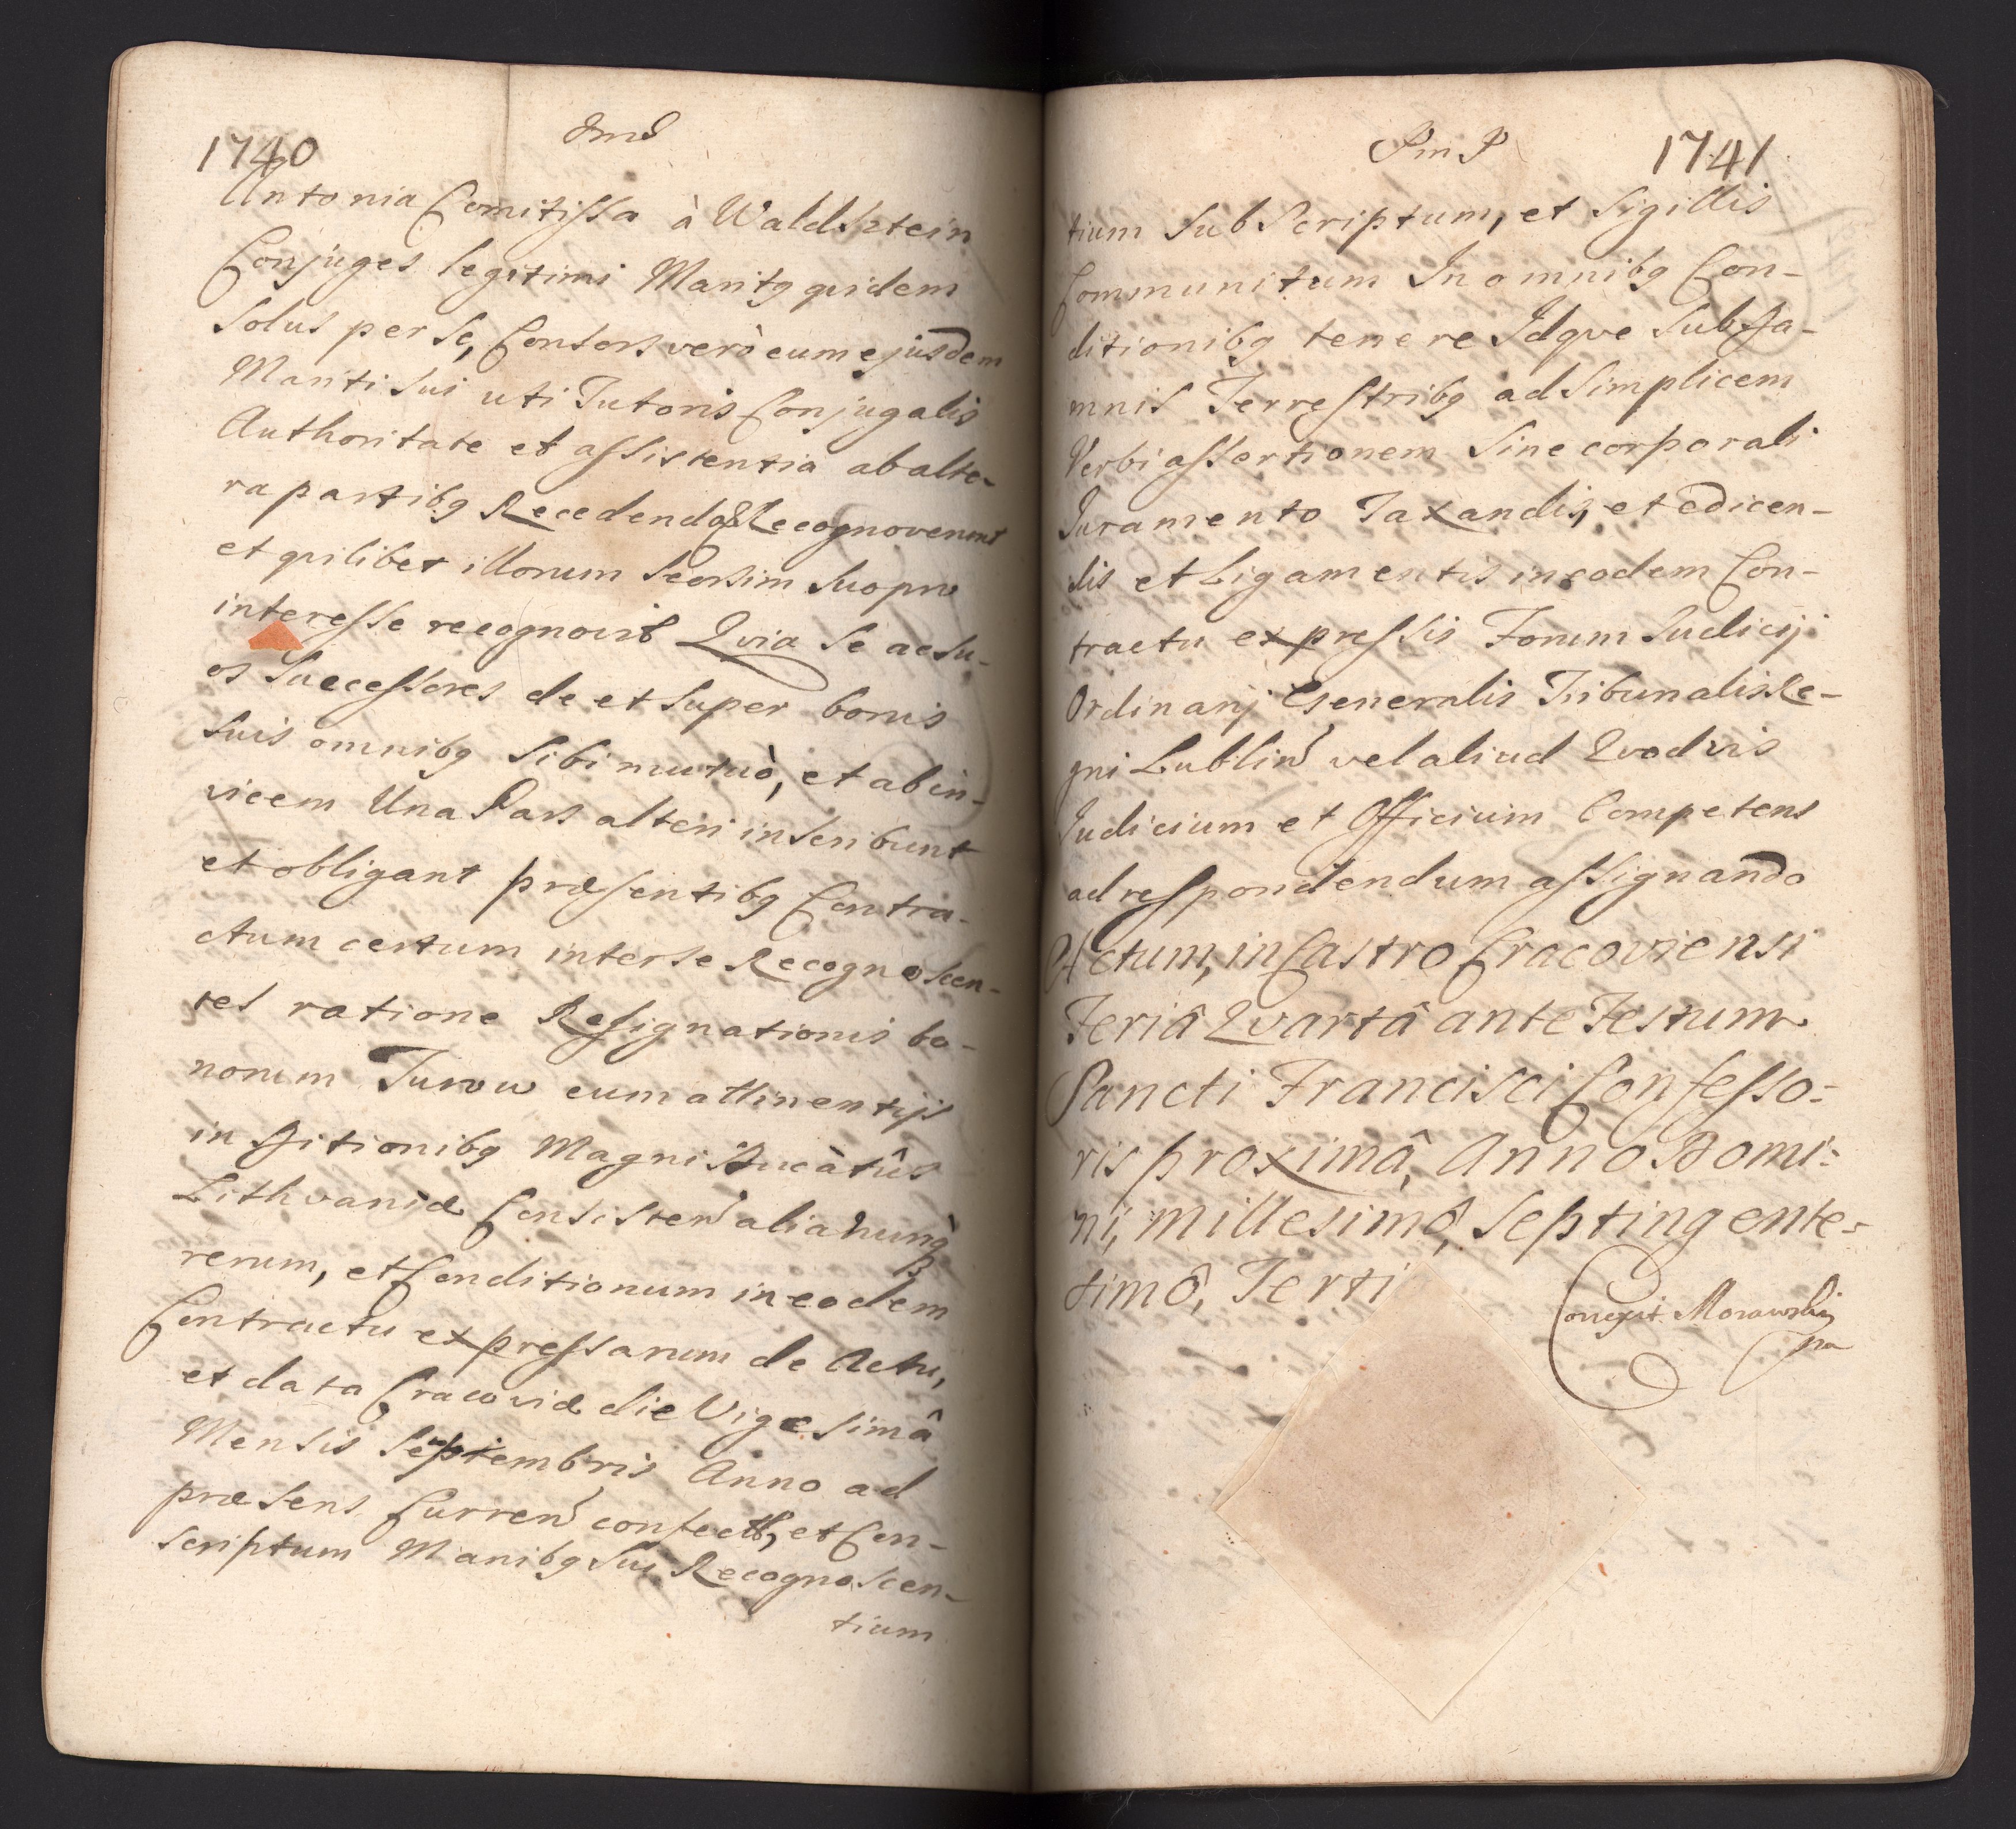 1740
Antonia Comitissa à Waldsztein
Conjuges legitimi Maritꝯ quidem
Solus per se, Consors verò cum ejusdem
Mariti sui uti Tutoris Conjugalis
Authoritate et assistentia ab alte-
ra partibꝯ Recedendo Recognoverunt
et quilibet illorum seorsim suo pro
interesse recognovit Qvia se ac su-
os Successores de et super bonis
suis omnibꝯ sibi mutuò, et ab in-
vicem Una Pars alteri inscribunt
et obligant præsentibꝯ Contra-
ctum certum inter se Recognoscen-
tes ratione Resignationis bo-
norum Turow cum attinentijs
in ditionibꝯ Magni Ducâtûs
Lithvaniæ Consisten aliarumq̀
rerum, et Conditionum in eodem
Contractu expressarum de Actu,
et data Cracoviæ die Vigesimâ
Mensis Septembris Anno ad
præsens Curren confect, et Con-
scriptum Manibꝯ Suis Recognoscen-
tium
1741
tium SubScriptum, et Sigillis
Communitum In omnibꝯ Con-
ditionibꝯ tenere Idqve sub da-
mnis Terrestribꝯ ad simplicem
Verbi assertionem Sine corporali
Juramento Taxandis, et edicen-
dis et Ligamentis in eodem Con-
tractu expressis Forum Judicij
Ordinarij Generalis Tribunalis Re-
gni Lublin vel aliud Qvodvis
Judicium et Officium Competens
ad respondendum assignando
Actum, in Castro Cracoviensi
Feriâ Qvartâ ante Festum
Sancti Francisci Confesso-
ris proximâ, Anno Domi-
ni, Millesimô, Septingente-
simô, Terti
Correxit Morawski